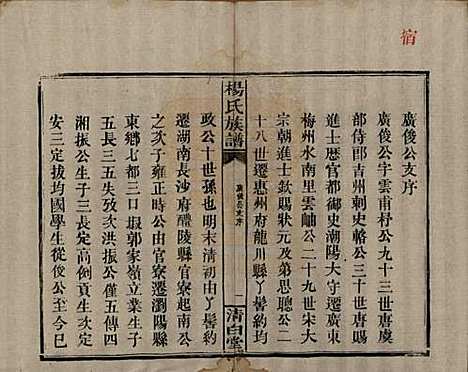 宿
廣俊公支序
廣俊公字雲甫朴公九十三世唐虞
部侍郎吉州剌史勝公三十世唐賜
進士歷官都御史潮陽大守遷廣東
梅州水南里雲岫公二十九世南
宗朝進士欽賜狀元及第思聰公二
十八世遷惠州府龍川縣丫髻約均
楊氏族譜
廣俊公支序
一
清白堂
政公十世孫也明末清初由丫髻約
遷湖南長沙府醴陵縣官寮起南公
之次子雍正時公由官寮遷瀏陽縣
東鄉七都三口塅郭家嶺立業生子
五長三五失攷次洪振公僅五傳四
湘振公生子三長定高倒頁生次定
安三定拔均國學生從俊公至今已